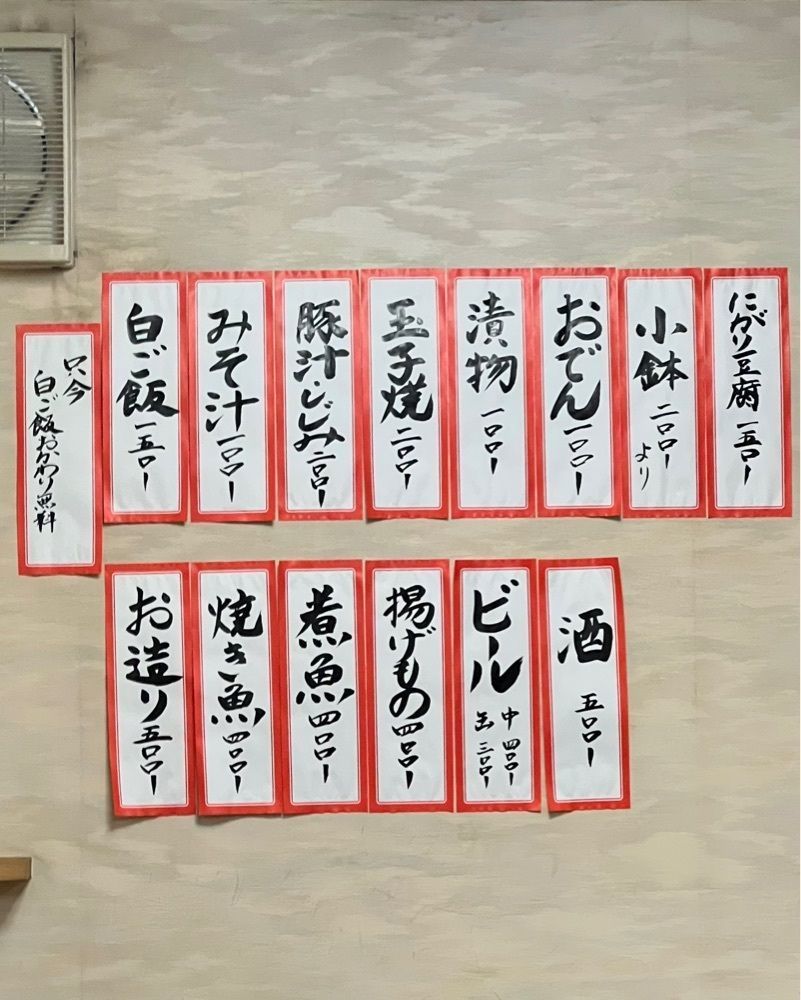 にがり豆腐 一五〇ー
小鉢 二〇〇ー
より
おでん 一〇〇ー
漬物 一〇〇ー
玉子焼 二〇〇ー
豚汁・しじみ 二〇〇ー
みそ汁 一〇〇ー
白ご飯 一五〇ー
只今
白ご飯おかわり無料
酒 五〇〇ー
ビール
中 四〇〇ー
缶 三〇〇ー
揚げもの 四〇〇ー
煮魚 四〇〇ー
焼き魚 四〇〇ー
お造り 五〇〇ー